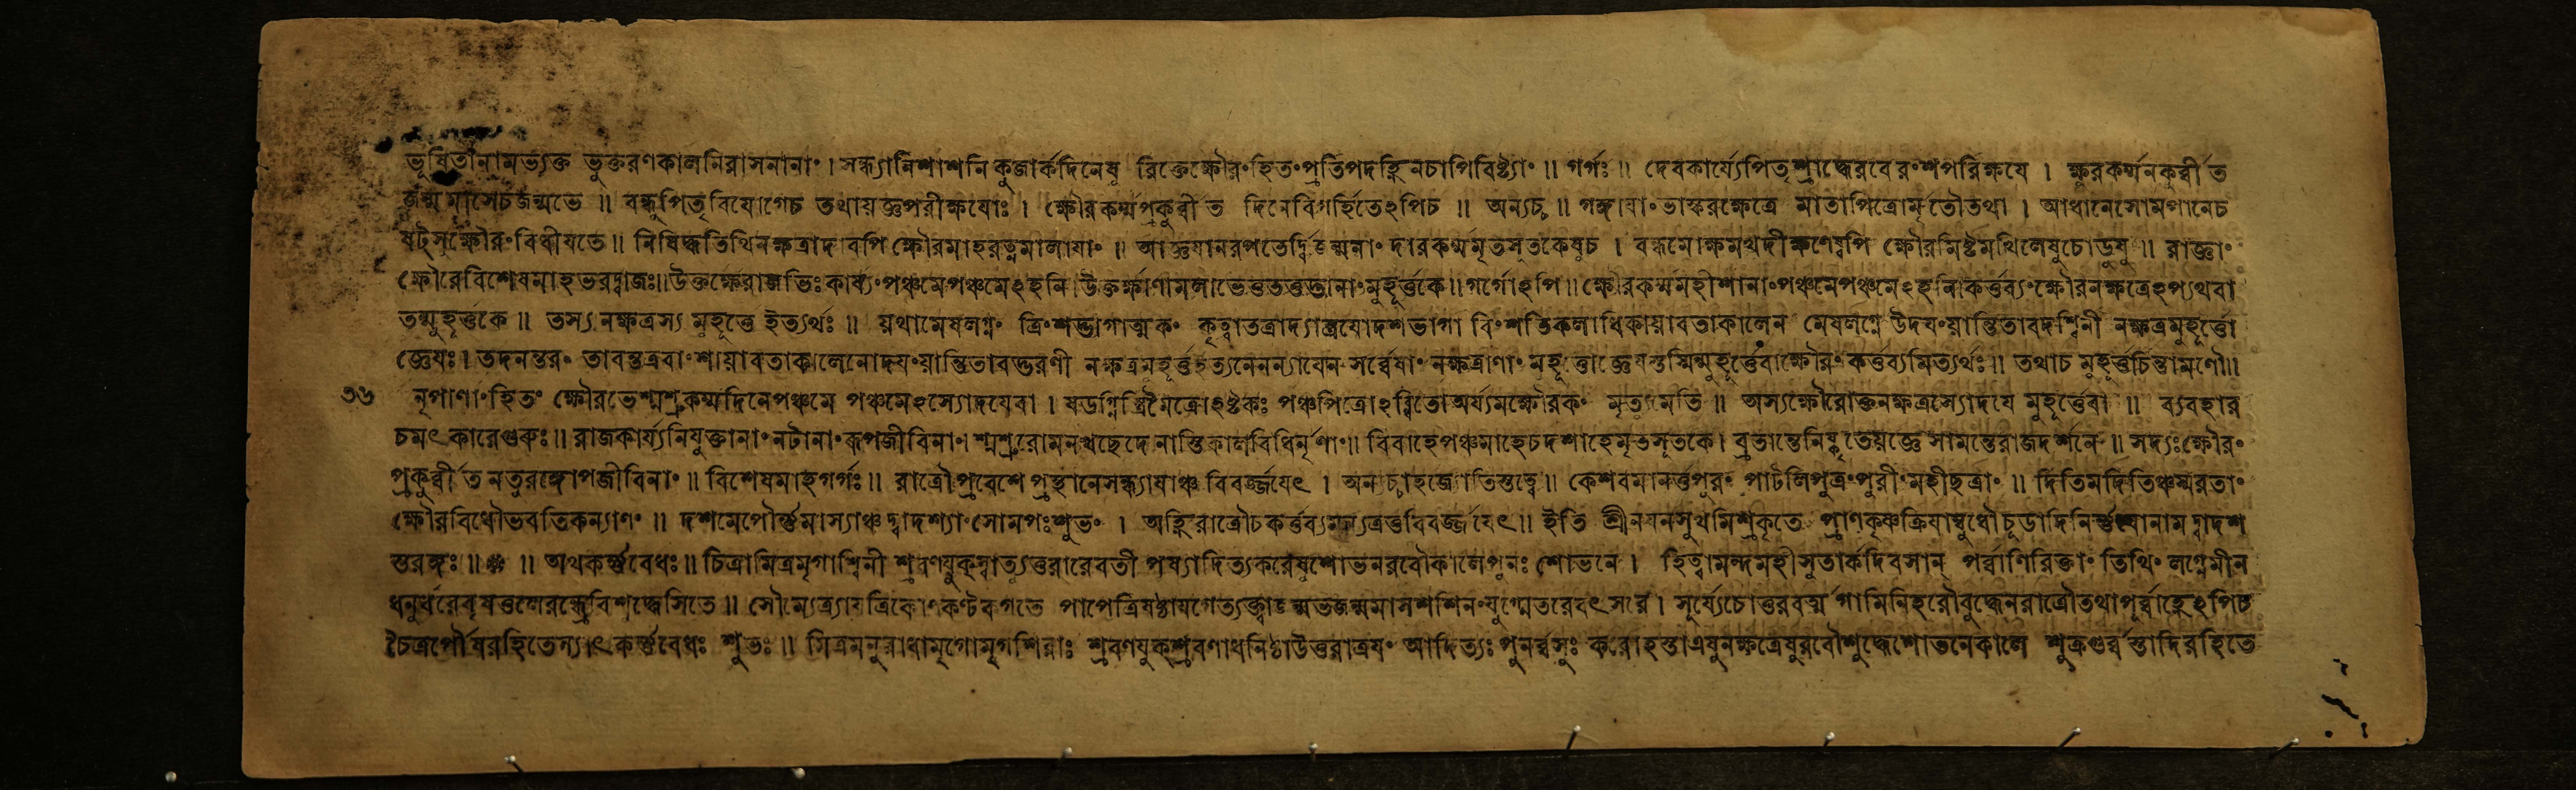 ভূষিতানামভ্যক্ত ভুক্তরণকালনিরাসনানাং । সন্ধ্যানিশাশনি কুজার্কদিনেষু রিক্তেক্ষৌরংহিতংপ্রতিপদহ্নিনচাপিবিষ্ট্যাং ॥ গর্গঃ ॥ দেবকার্য্যেপিতৃশ্রাদ্ধেরবেরংশপরিক্ষযে । ক্ষূরকর্ম্মনকুর্ব্বীত
জন্মমাসেচজন্মভে ॥ বন্ধুপিতৃবিযোগেচ তথাযজ্ঞপরীক্ষযোঃ । ক্ষৌরকর্ম্মপ্রকুর্ব্বীত দিনেবিগর্হিতেঽপিচ ॥ অন্যচ্চ ॥ গঙ্গাযাংভাস্করক্ষেত্রে মাতাপিত্রোর্মৃতৌতথা । আধানেসোমপানেচ
ষট্সুক্ষৌরংবিধীযতে ॥ নিষিদ্ধতিথিনক্ষত্রাদাবপি ক্ষৌরমাহরত্নমালাযাং ॥ আজ্ঞযানরপতের্দ্বিজন্মনাং দারকর্ম্মমৃতসূতকেষুচ । বন্ধমোক্ষমখদীক্ষণেষ্বপি ক্ষৌরমিষ্টমখিলেষুচোডুষু ॥ রাজ্ঞাং
ক্ষৌরেবিশেষমাহভরদ্বাজঃ॥উক্তর্ক্ষেরাজভিঃকার্য্যংপঞ্চমেপঞ্চমেঽহনি।উক্তর্ক্ষাণামলাভেতুতত্তত্তানাংমুহূর্ত্তকে॥গর্গোঽপি॥ক্ষৌরকর্ম্মমহীশানাংপঞ্চমেপঞ্চমেঽহনি।কর্ত্তব্যংক্ষৌরনক্ষত্রেঽপ্যথবা
তন্মুহূর্ত্তকে ॥ তস্য নক্ষত্রস্য মুহূর্ত্তে ইত্যর্থঃ ॥ যথামেষলগ্নং ত্রিংশদ্ভাগাত্মকং কৃত্বাতত্রাদ্যাস্ত্রযোদশভাগা বিংশতিকলাধিকাযাবতাকালেন মেষলগ্নে উদযংযান্তিতাবদশ্বিনী নক্ষত্রমুহূর্ত্তো
জ্ঞেযঃ । তদনন্তরং তাবন্তএবাংশাযাবতাকালেনোদযংযান্তিতাবদ্ভরণী নক্ষত্রমুহূর্ত্তইত্যনেনন্যাযেন সর্ব্বেষাং নক্ষত্রাণাং মুহূর্ত্তোজ্ঞেযস্তস্মিন্মুহূর্ত্তেবাক্ষৌরং কর্ত্তব্যমিত্যর্থঃ ॥ তথাচ মুহূর্ত্তচিন্তামণৌ॥
৩৬ নৃপাণাংহিতং ক্ষৌরভেশ্মশ্রুকর্ম্মদিনেপঞ্চমে পঞ্চমেঽস্যোদযেবা । ষডগ্নিস্ত্রিমৈত্রোঽষ্টকঃ পঞ্চপিত্রোঽব্ধিতোঅর্য্যমক্ষৌরকং মৃত্যুমেতি ॥ অস্যক্ষৌরোক্তনক্ষত্রস্যোদযে মুহূর্ত্তেবা ॥ ব্যবহার
চমৎকারেগুরুঃ॥ রাজকার্য্যনিযুক্তানাং নটানাং রূপজীবিনাং। শ্মশ্রুরোমনখছেদেনাস্তিকালবিধির্নৃণাং॥ বিবাহেপঞ্চমাহেচদশাহেমৃতসূতকে। ব্রতান্তেনিষ্কৃতেযজ্ঞেসামন্তেরাজদর্শনে ॥ সদ্যঃক্ষৌরং
প্রকুর্ব্বীত নতুরঙ্গোপজীবিনাং ॥ বিশেষমাহগর্গঃ ॥ রাত্রৌপ্রবেশে প্রস্থানেসন্ধ্যাযাঞ্চ বিবর্জ্জযেৎ । অন্যচ্চাহজ্যোতিস্তত্ত্বে ॥ কেশবমানর্ত্তপুরং পাটলিপুত্রংপুরীংমহীছত্রাং ॥ দিতিমদিতিঞ্চস্মরতাং
ক্ষৌরবিধৌভবতিকল্যাণং ॥ দশমেপৌর্ণ্ণমাস্যাঞ্চদ্বাদশ্যাংসোমপঃশুভং । অহ্নিরাত্রৌচকর্ত্তব্যমন্যত্রতুবিবর্জ্জযেৎ॥ ইতি শ্রীনযনসুখমিশ্রকৃতে প্রাণকৃষ্ণক্রিযাম্বুধৌচূডাদিনির্ণ্ণযোনামদ্বাদশ
স্তরঙ্গঃ ॥ ❁ ॥ অথকর্ণ্ণবেধঃ॥ চিত্রামিত্রমৃগাশ্বিনী শ্রবণযুক্স্বাত্যুত্তরারেবতী পুষ্যাদিত্যকরেষুশোভনরবৌকালেপুনঃ শোভনে । হিত্বামন্দমহীসুতার্কদিবসান্ পর্ব্বাণিরিক্তাং তিথিং লগ্নেমীন
ধনুর্ধরেবৃষতুলেরন্ধ্রেবিশুদ্ধেসিতে ॥ সৌম্যেত্র্যাযত্রিকোণকণ্টকগতে পাপেত্রিষষ্ঠাযগেত্যক্ত্বাজন্মভজন্মমাসশশিনংযুগ্মেতরেবৎসরে । সূর্য্যেচোত্তরবর্ত্মগামিনিহরৌবুদ্ধেনরাত্রৌতথাপূর্ব্বাহ্ণেঽপিচ
চৈত্রপৌষরহিতেস্যাৎকর্ণ্ণবেধঃ শুভঃ ॥ মিত্রমনুরাধামৃগোমৃগশিরাঃ শ্রবণযুক্শ্রবণাধনিষ্ঠাউত্তরাত্রযং আদিত্যঃপুনর্ব্বসুঃ করোহস্তাএষুনক্ষত্রেষুরবৌশুদ্ধেশোভনেকালে শুক্রগুর্ব্বস্তাদিরহিতে